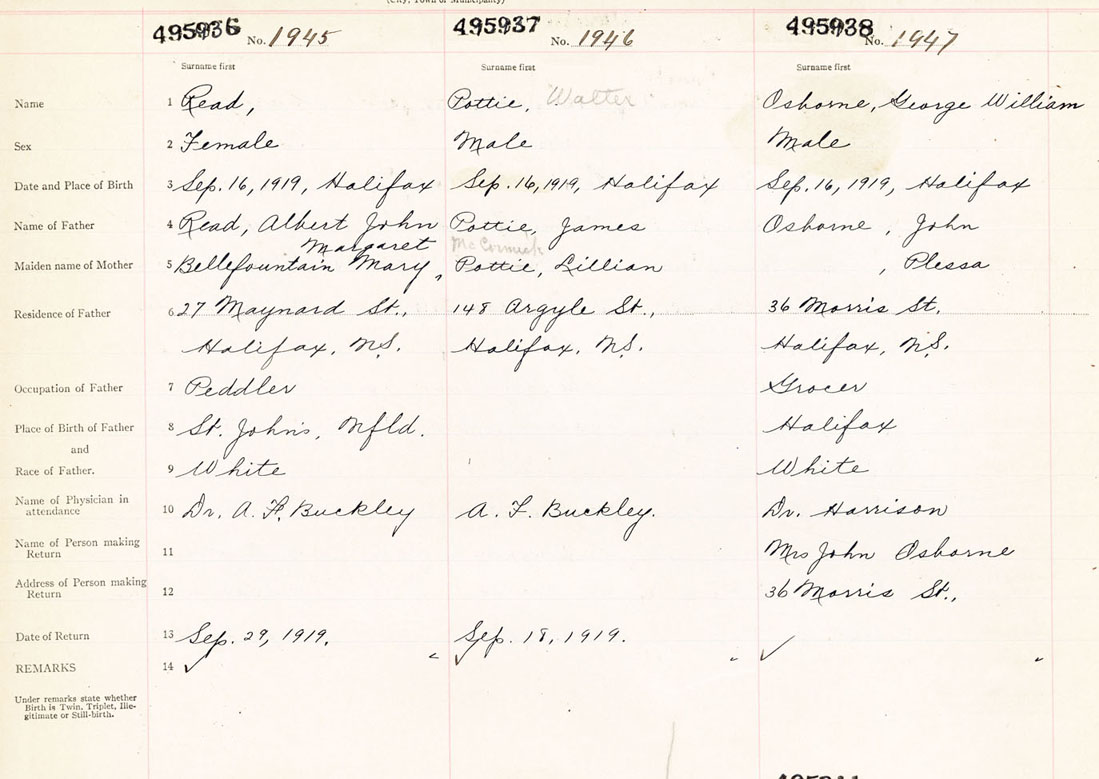 (City, Town or Municipality)
495936 No. 1945 495937 No. 1946 495938 No. 1947
Surname first Surname first Surname first
Name 1 Read, Pottie, Walter Osborne, George William
Sex 2 Female Male Male
Date and Place of Birth 3 Sep. 16, 1919, Halifax Sep. 16, 1919, Halifax Sep. 16, 1919, Halifax
Name of Father 4 Read, Albert John Pottie, James Osborne, John
Margaret McCormick
Maiden name of Mother 5 Bellefountain Mary, Pottie, Lillian , Plessa
Residence of Father 6 27 Maynard St., 148 Argyle St., 36 Morris St.
Halifax, N.S. Halifax, N.S. Halifax, N.S.
Occupation of Father 7 Peddler Grocer
Place of Birth of Father 8 St. John's, Nfld. Halifax
and
Race of Father. 9 White White
Name of Physician in
attendance 10 Dr. A. F. Buckley A. F. Buckley. Dr. Harrison
Name of Person making
Return 11 Mrs John Osborne
Address of Person making
Return 12 36 Morris St.,
Date of Return 13 Sep. 29, 1919. Sep. 18, 1919.
REMARKS 14 ✓ " ✓ " ✓ "
Under remarks state whether
Birth is Twin, Triplet, Ille-
gitimate or Still-birth.